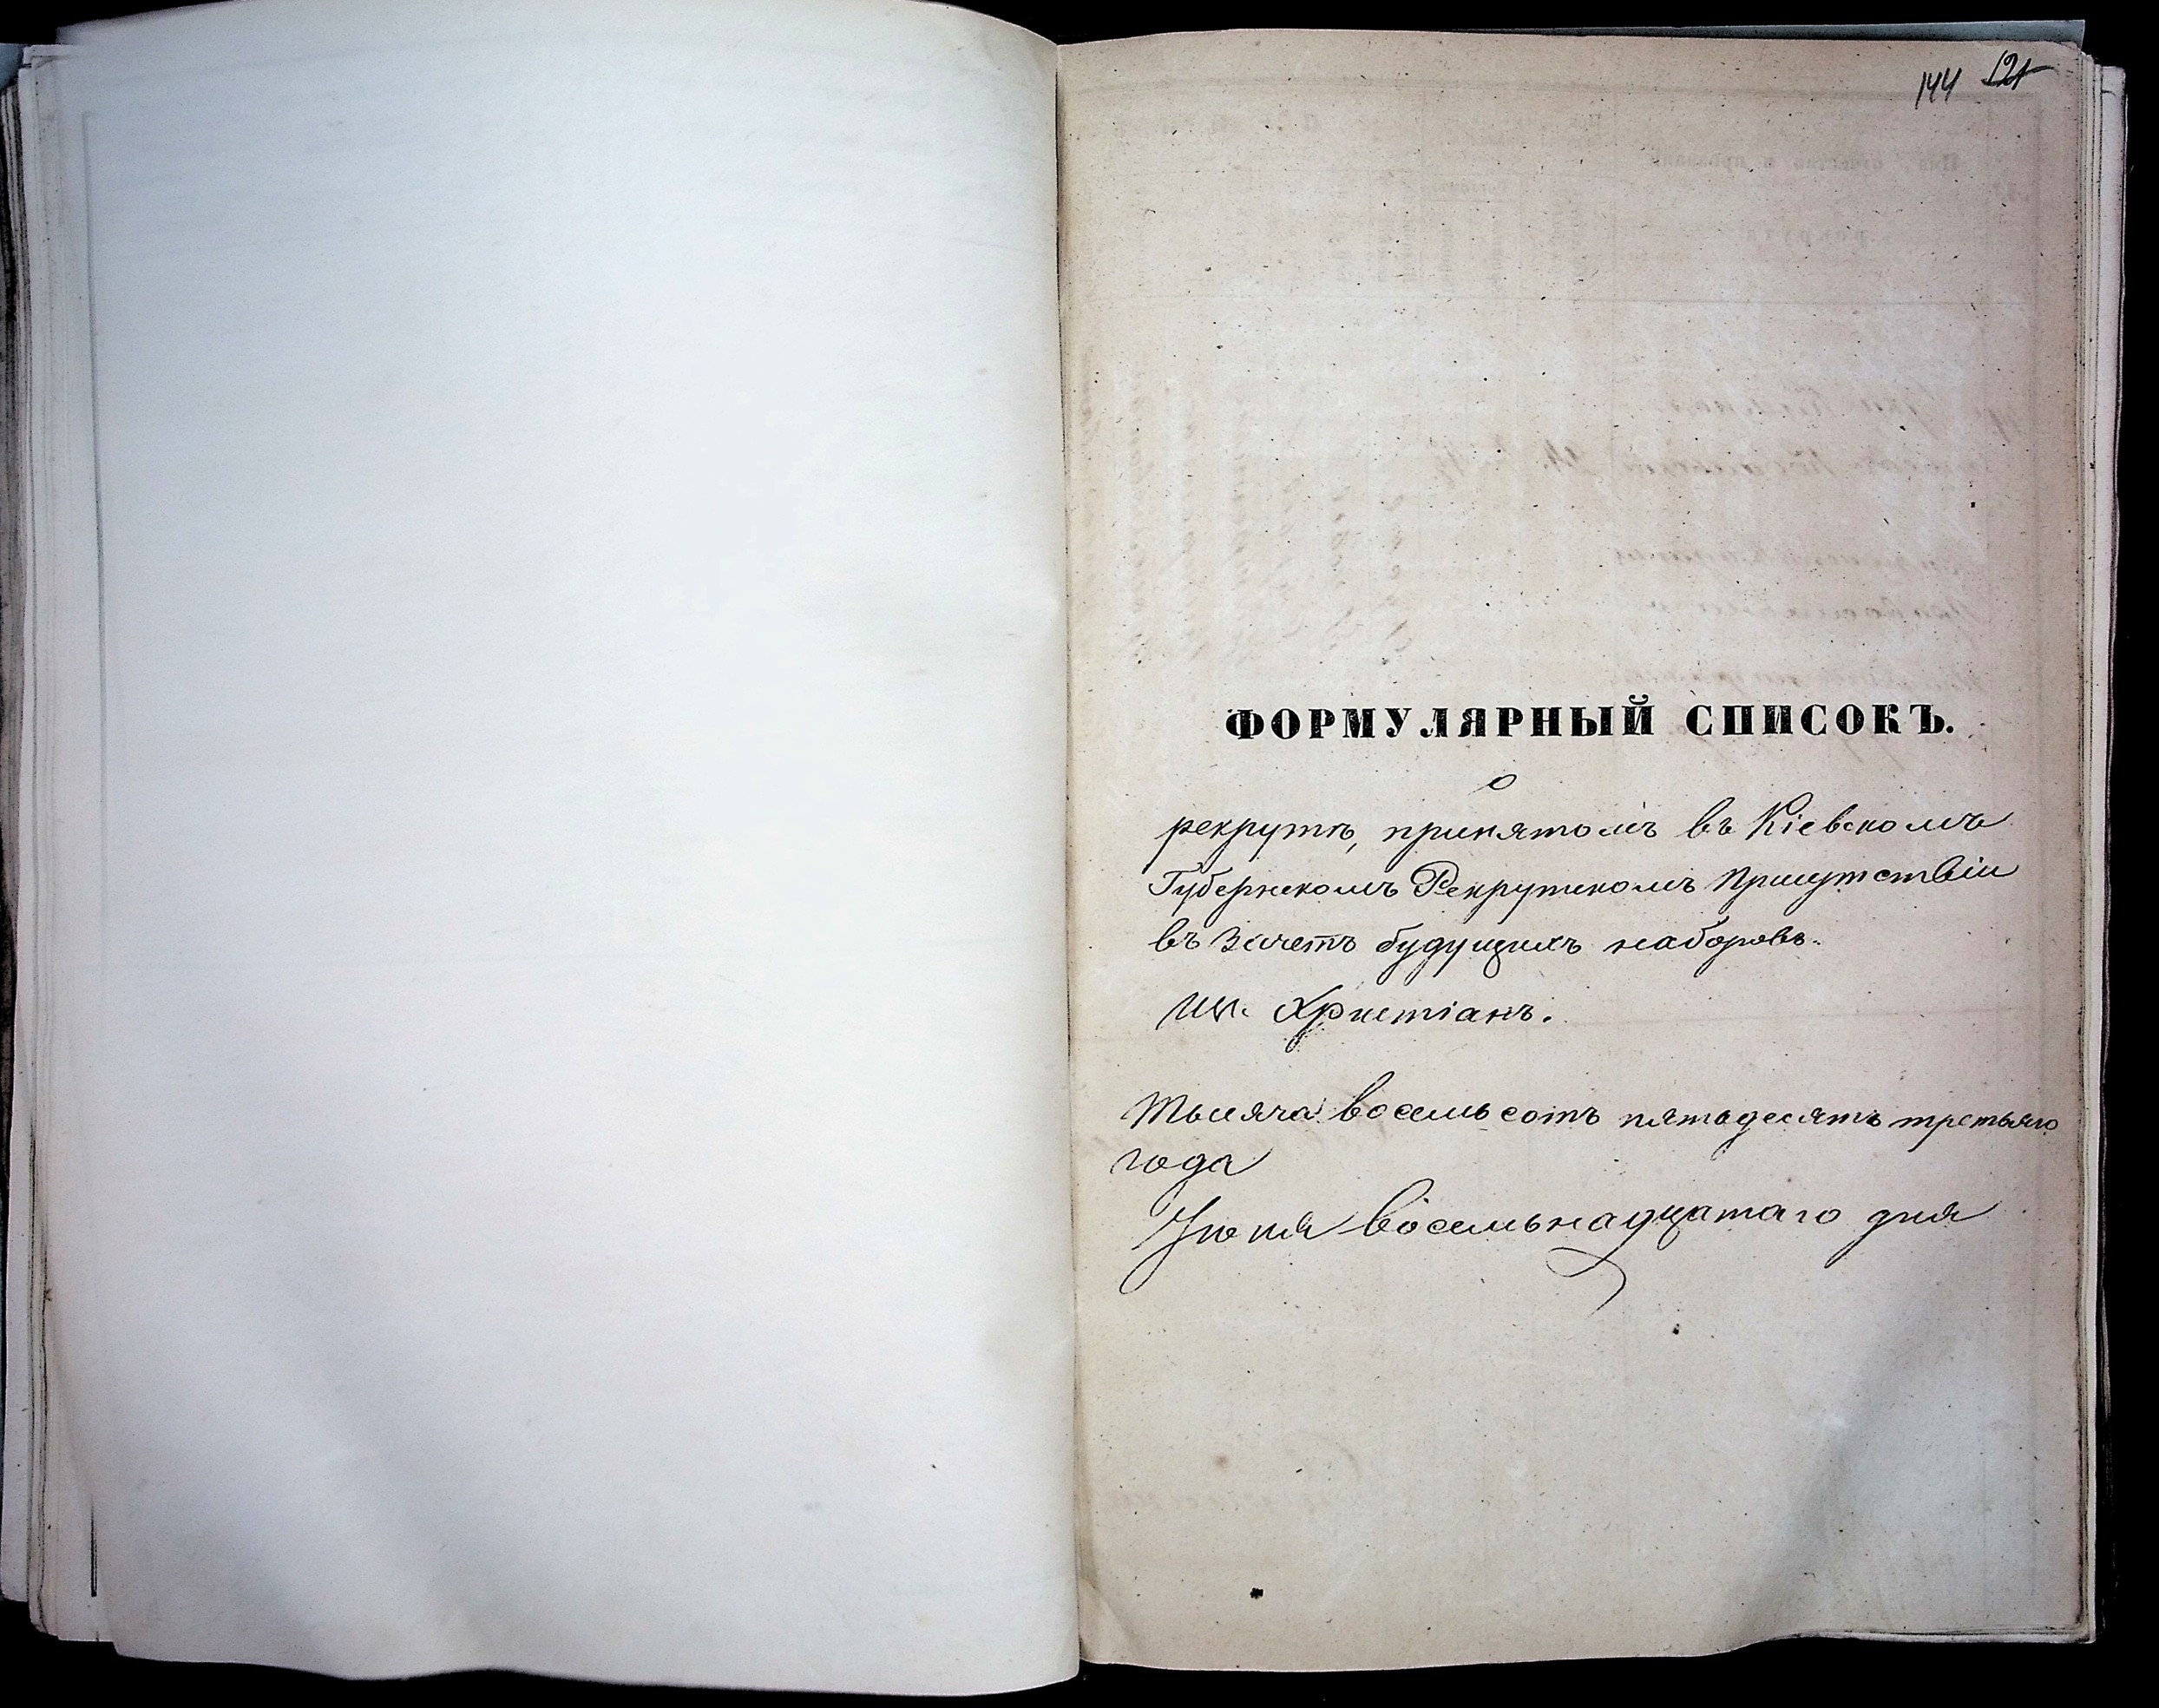 144 121
ФОРМУЛЯРНЫЙ СПИСОКЪ.
о
рекрутѣ, принятомъ въ Кіевскомъ
Губернскомъ Рекрутскомъ Присутствіи
въ зачетъ будущихъ наборовъ.
Из. Христіанъ.
Тысяча восемьсотъ пятьдесятъ третьяго
года
Іюня восемьнадцатаго дня